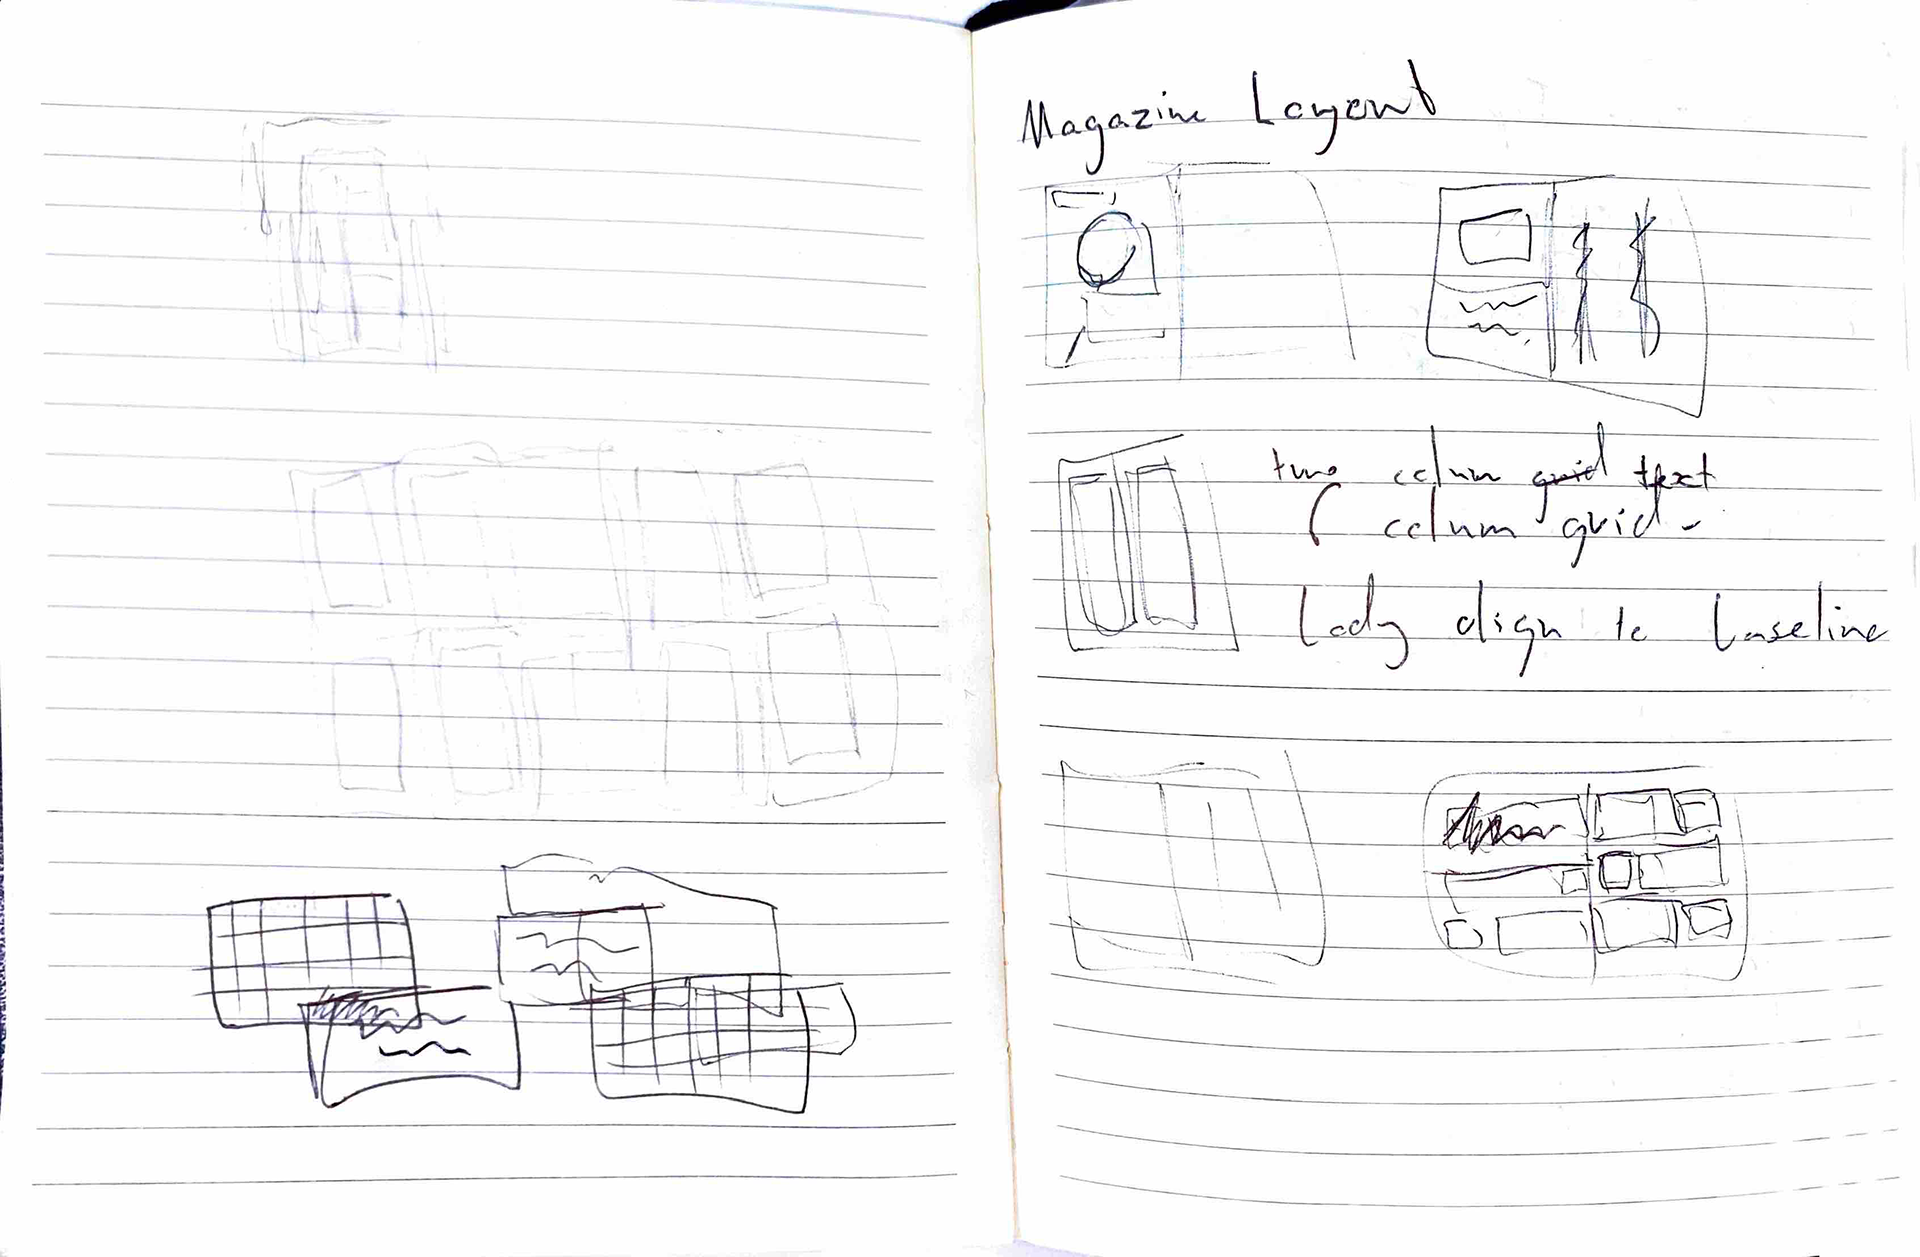 Magazine Layout
two colum grid text
colum grid -
body align to baseline